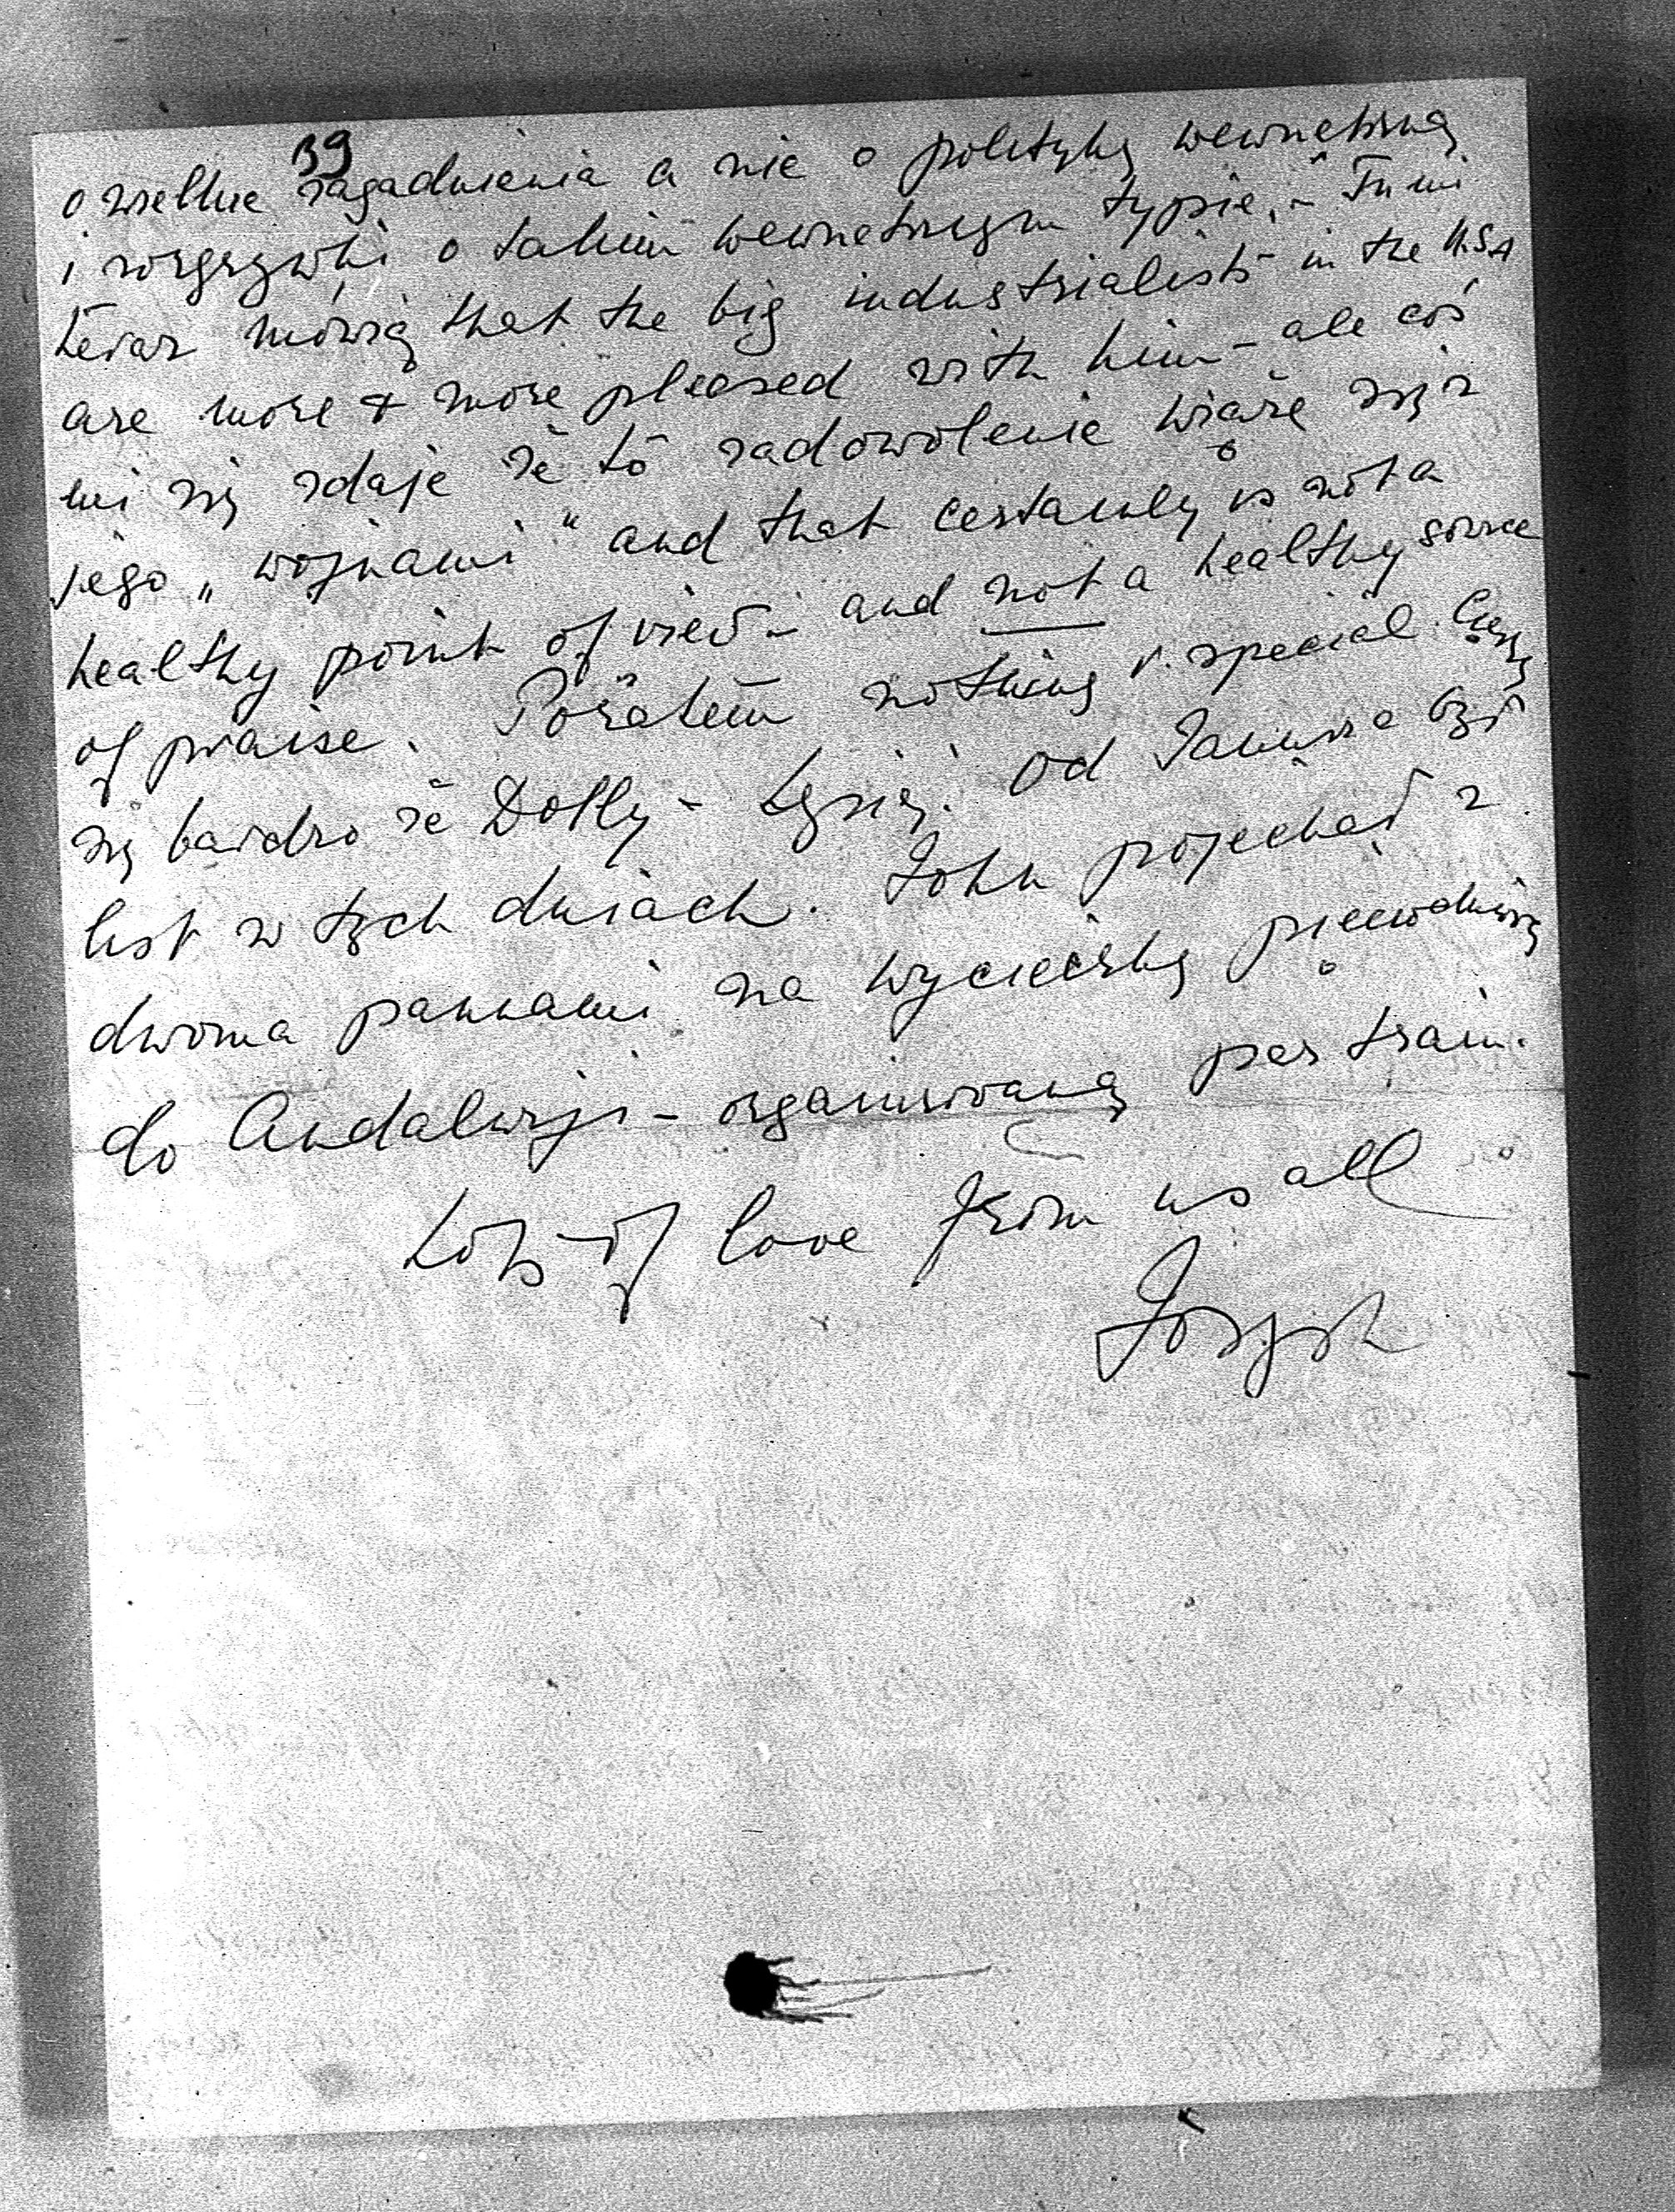 39
o wielkie zagadnienia a nie o politykę wewnetrzną
i rozgrywki o takim wewnetrznym typie. – Tu mi
teraz mówią that the big industrialists in the U.S.A
are more & more pleased with him – ale coś
mi się zdaje że to zadowolenie wiąże się z
jego „wojnami" and that certainly is not a
healthy point of view – and not a healthy source
of praise. Pozatem nothing v. special. Cieszę
się bardzo że Dolly – tęgieje. Od Janusza był
list w tych dniach. John pojechał z
dwoma pannami na wycieczkę
do Andaluzji – organizowaną per train.
Lots of love from us all